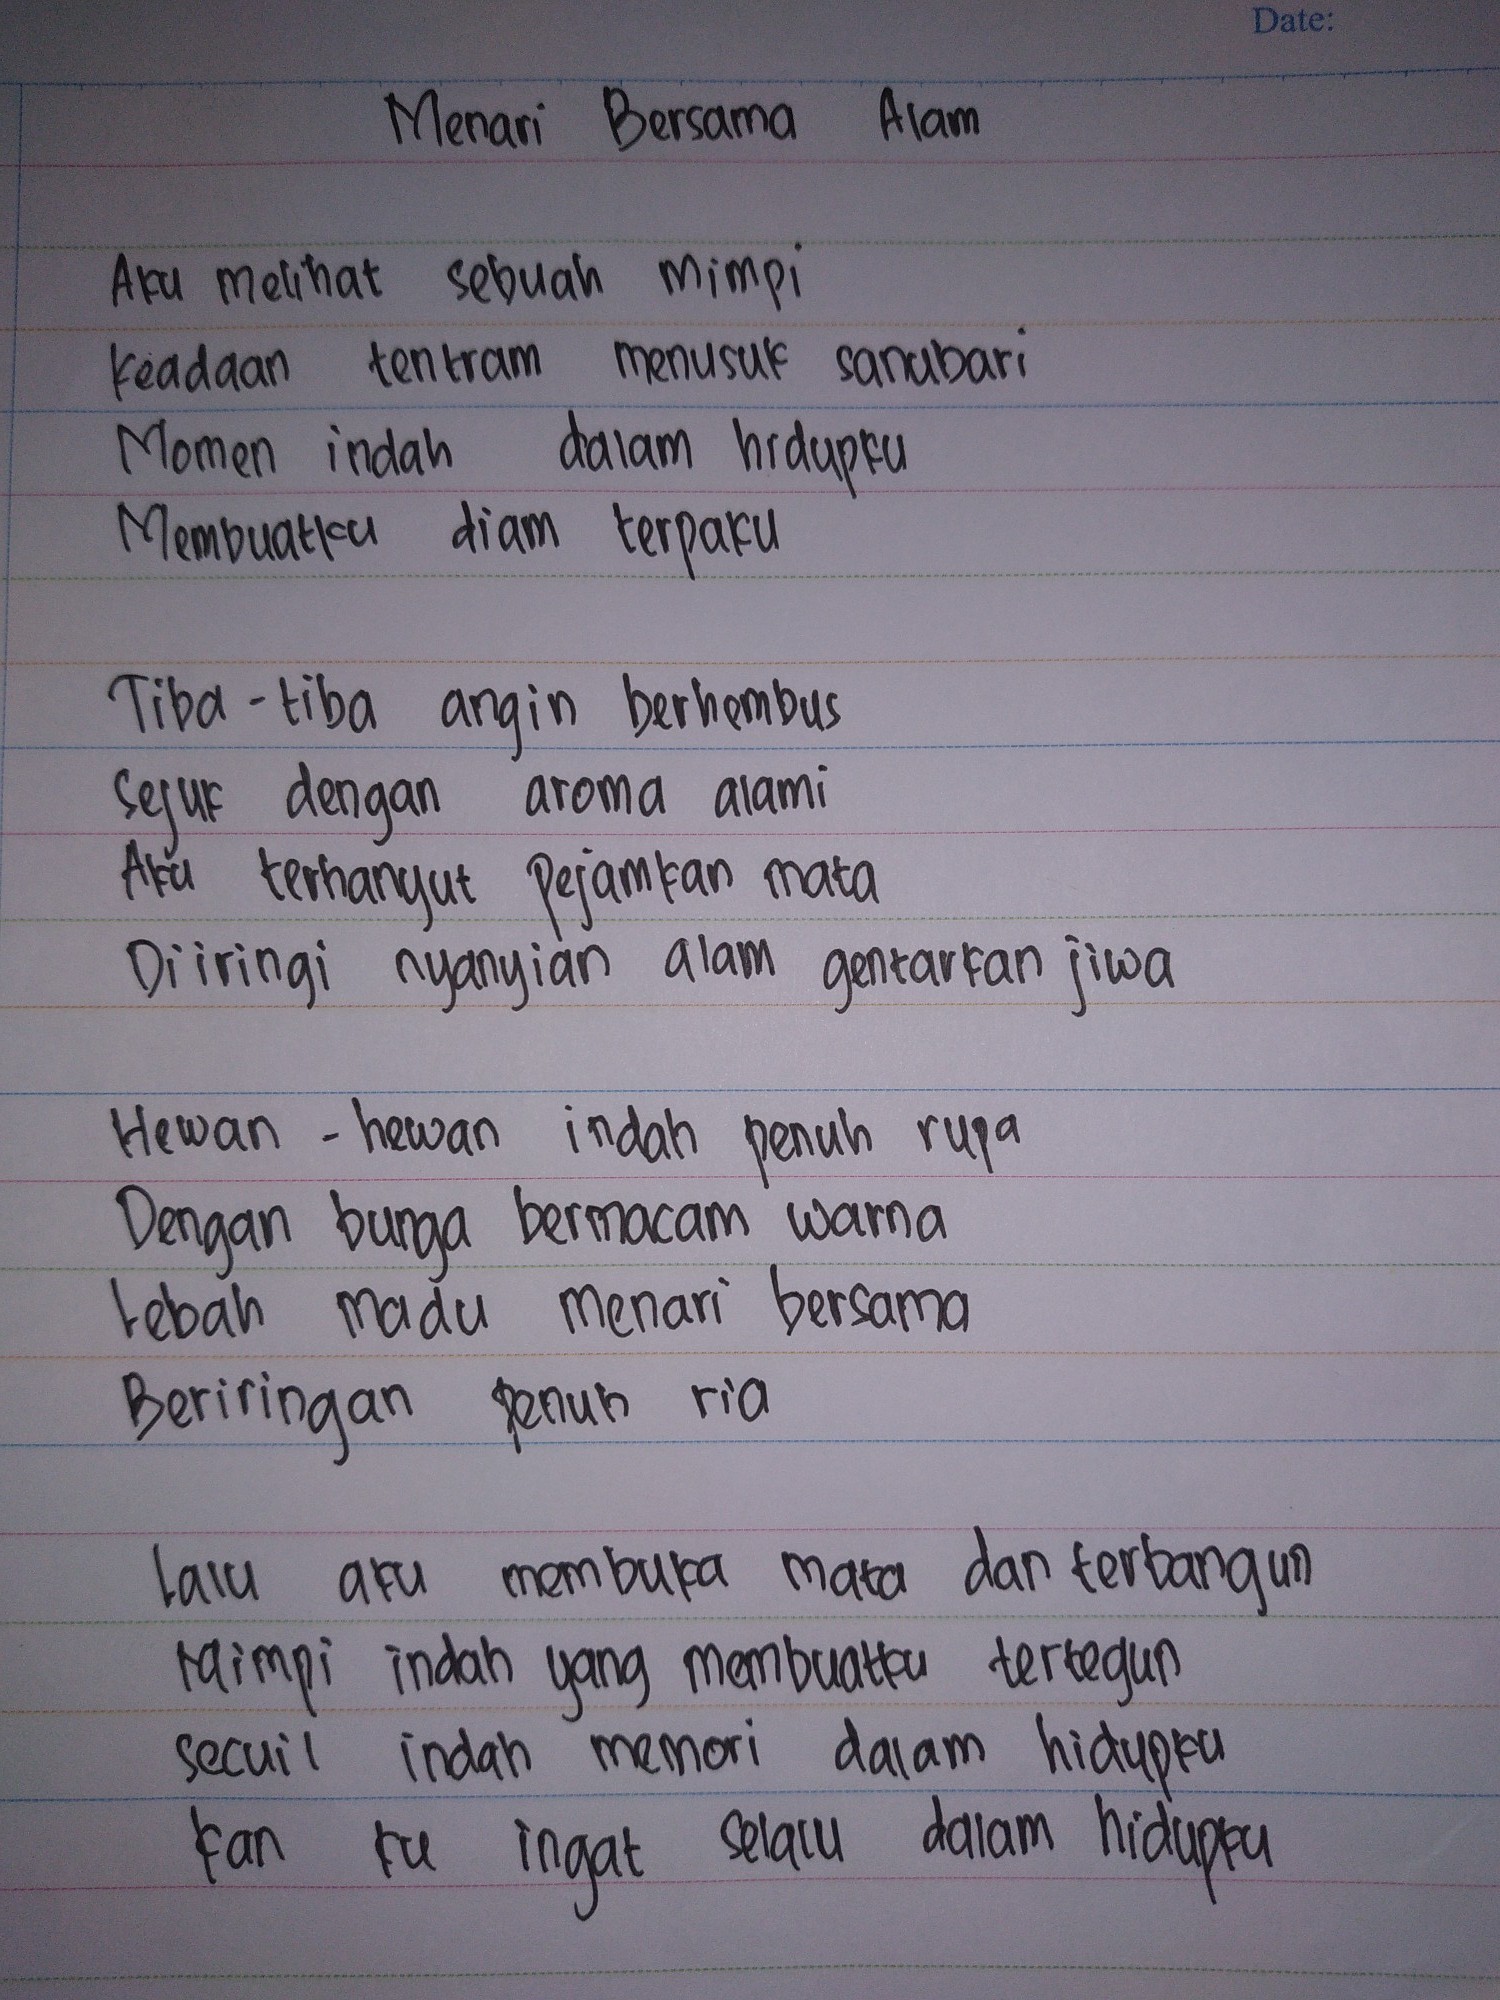 Date:
Menari Bersama Alam
Aku melihat sebuah mimpi
Keadaan tentram menusuk sanubari
Momen indah dalam hidupku
Membuatku diam terpaku
Tiba-tiba angin berhembus
Sejuk dengan aroma alami
Aku terhanyut pejamkan mata
Diiringi nyanyian alam gentarkan jiwa
Hewan-hewan indah penuh rupa
Dengan bunga bermacam warna
Lebah madu menari bersama
Beriringan penuh ria
Lalu aku membuka mata dan terbangun
Mimpi indah yang membuatku tertegun
Secuil indah memori dalam hidupku
Kan ku ingat selalu dalam hidupku